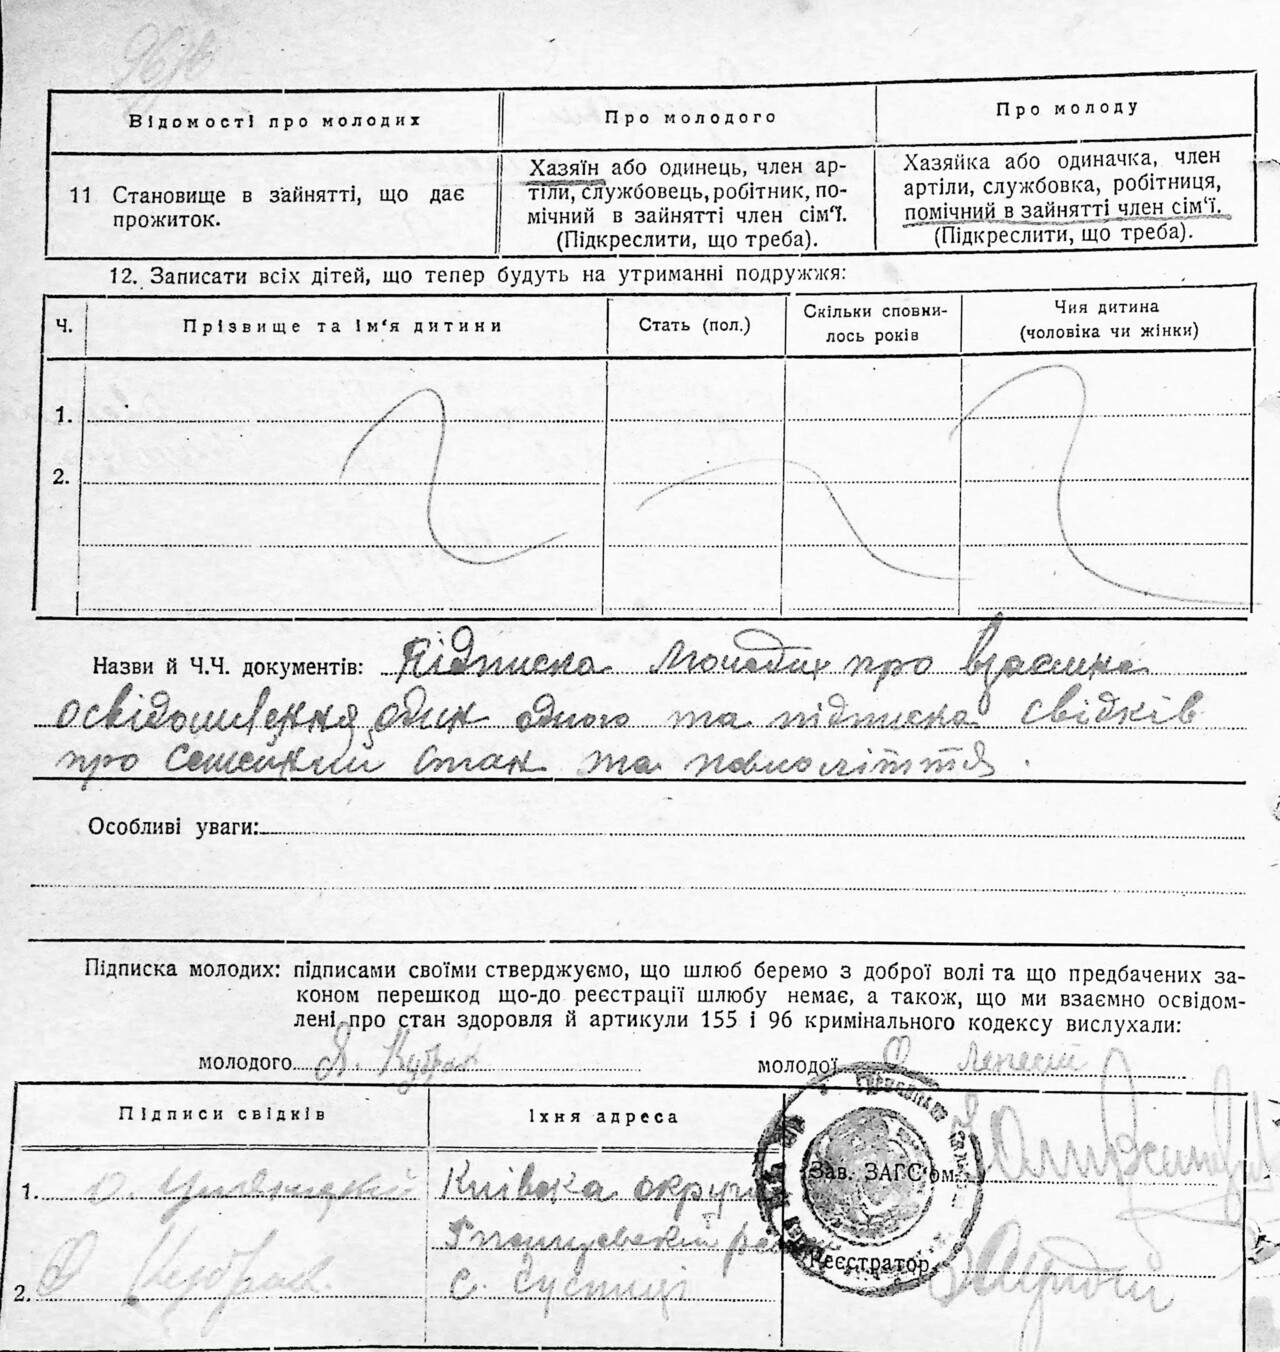 Відомості про молодих
Про молодого
Про молоду
11 Становище в зайнятті, що дає
прожиток.
Хазяїн або одинець, член ар-
тіли, службовець, робітник, по-
мічний в зайнятті член сім'ї.
(Підкреслити, що треба).
Хазяйка або одиначка, член
артіли, службовка, робітниця,
помічний в зайнятті член сім'ї.
(Підкреслити, що треба).
12. Записати всіх дітей, що тепер будуть на утриманні подружжя:
Ч.
Прізвище та ім'я дитини
Стать (пол.)
Скільки сповни-
лось років
Чия дитина
(чоловіка чи жінки)
1.
2.
Назви й Ч.Ч. документів: Підписка молодих про взаємне
освідомлення один одного та підписка свідків
про семейний стан та повноліття.
Особливі уваги:
Підписка молодих: підписами своїми стверджуємо, що шлюб беремо з доброї волі та що предбачених за-
коном перешкод що-до реєстрації шлюбу немає, а також, що ми взаємно освідом-
лені про стан здоровля й артикули 155 і 96 кримінального кодексу вислухали:
молодого Я. Кубрак
молодої
Підписи свідків
Їхня адреса
1.
Київска округа
Зав. ЗАГС'ом
2. Кубрак
с.
Реєстратор